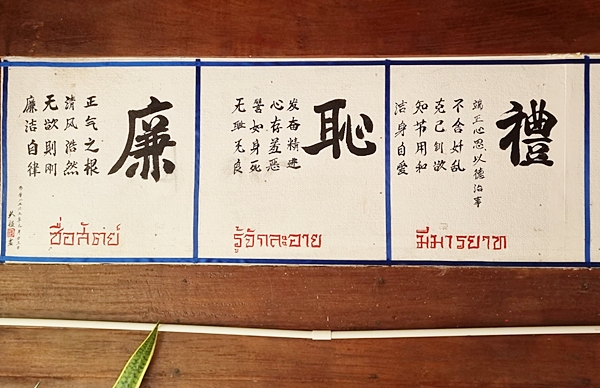 禮
端正心思以德治事
不合好乱
克己制欲
知节用和
洁身自爱
มีมารยาท
恥
发奋精进
心存羞恶
无耻无良
รู้จักละอาย
廉
正气之根
清风浩然
无欲则刚
廉洁自律
ซื่อสัตย์